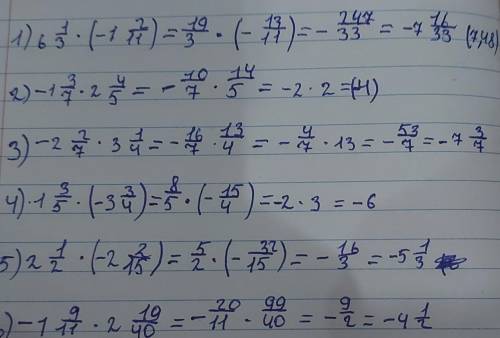 1) 6 1/3 · (-1 2/11) = 19/3 · (- 13/11) = - 247/33 = -7 16/33 (7,48)
2) -1 3/7 · 2 4/5 = - 10/7 · 14/5 = -2 · 2 = (-4)
3) -2 2/7 · 3 1/4 = - 16/7 · 13/4 = - 4/7 · 13 = - 53/7 = -7 3/7
4) · 1 3/5 · (-3 3/4) = 8/5 · (- 15/4) = -2 · 3 = -6
5) 2 1/2 · (-2 2/15) = 5/2 · (- 32/15) = - 16/3 = -5 1/3
) -1 9/11 · 2 19/40 = - 20/11 · 99/40 = - 9/2 = -4 1/2